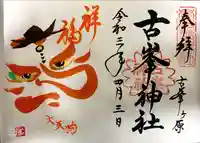 奉拝
古峯ヶ原
古峯神社
令和二年四月三日
祥
福
大天狗